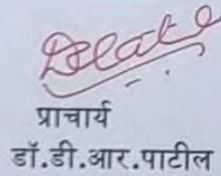 प्राचार्य
डॉ.डी.आर.पाटील